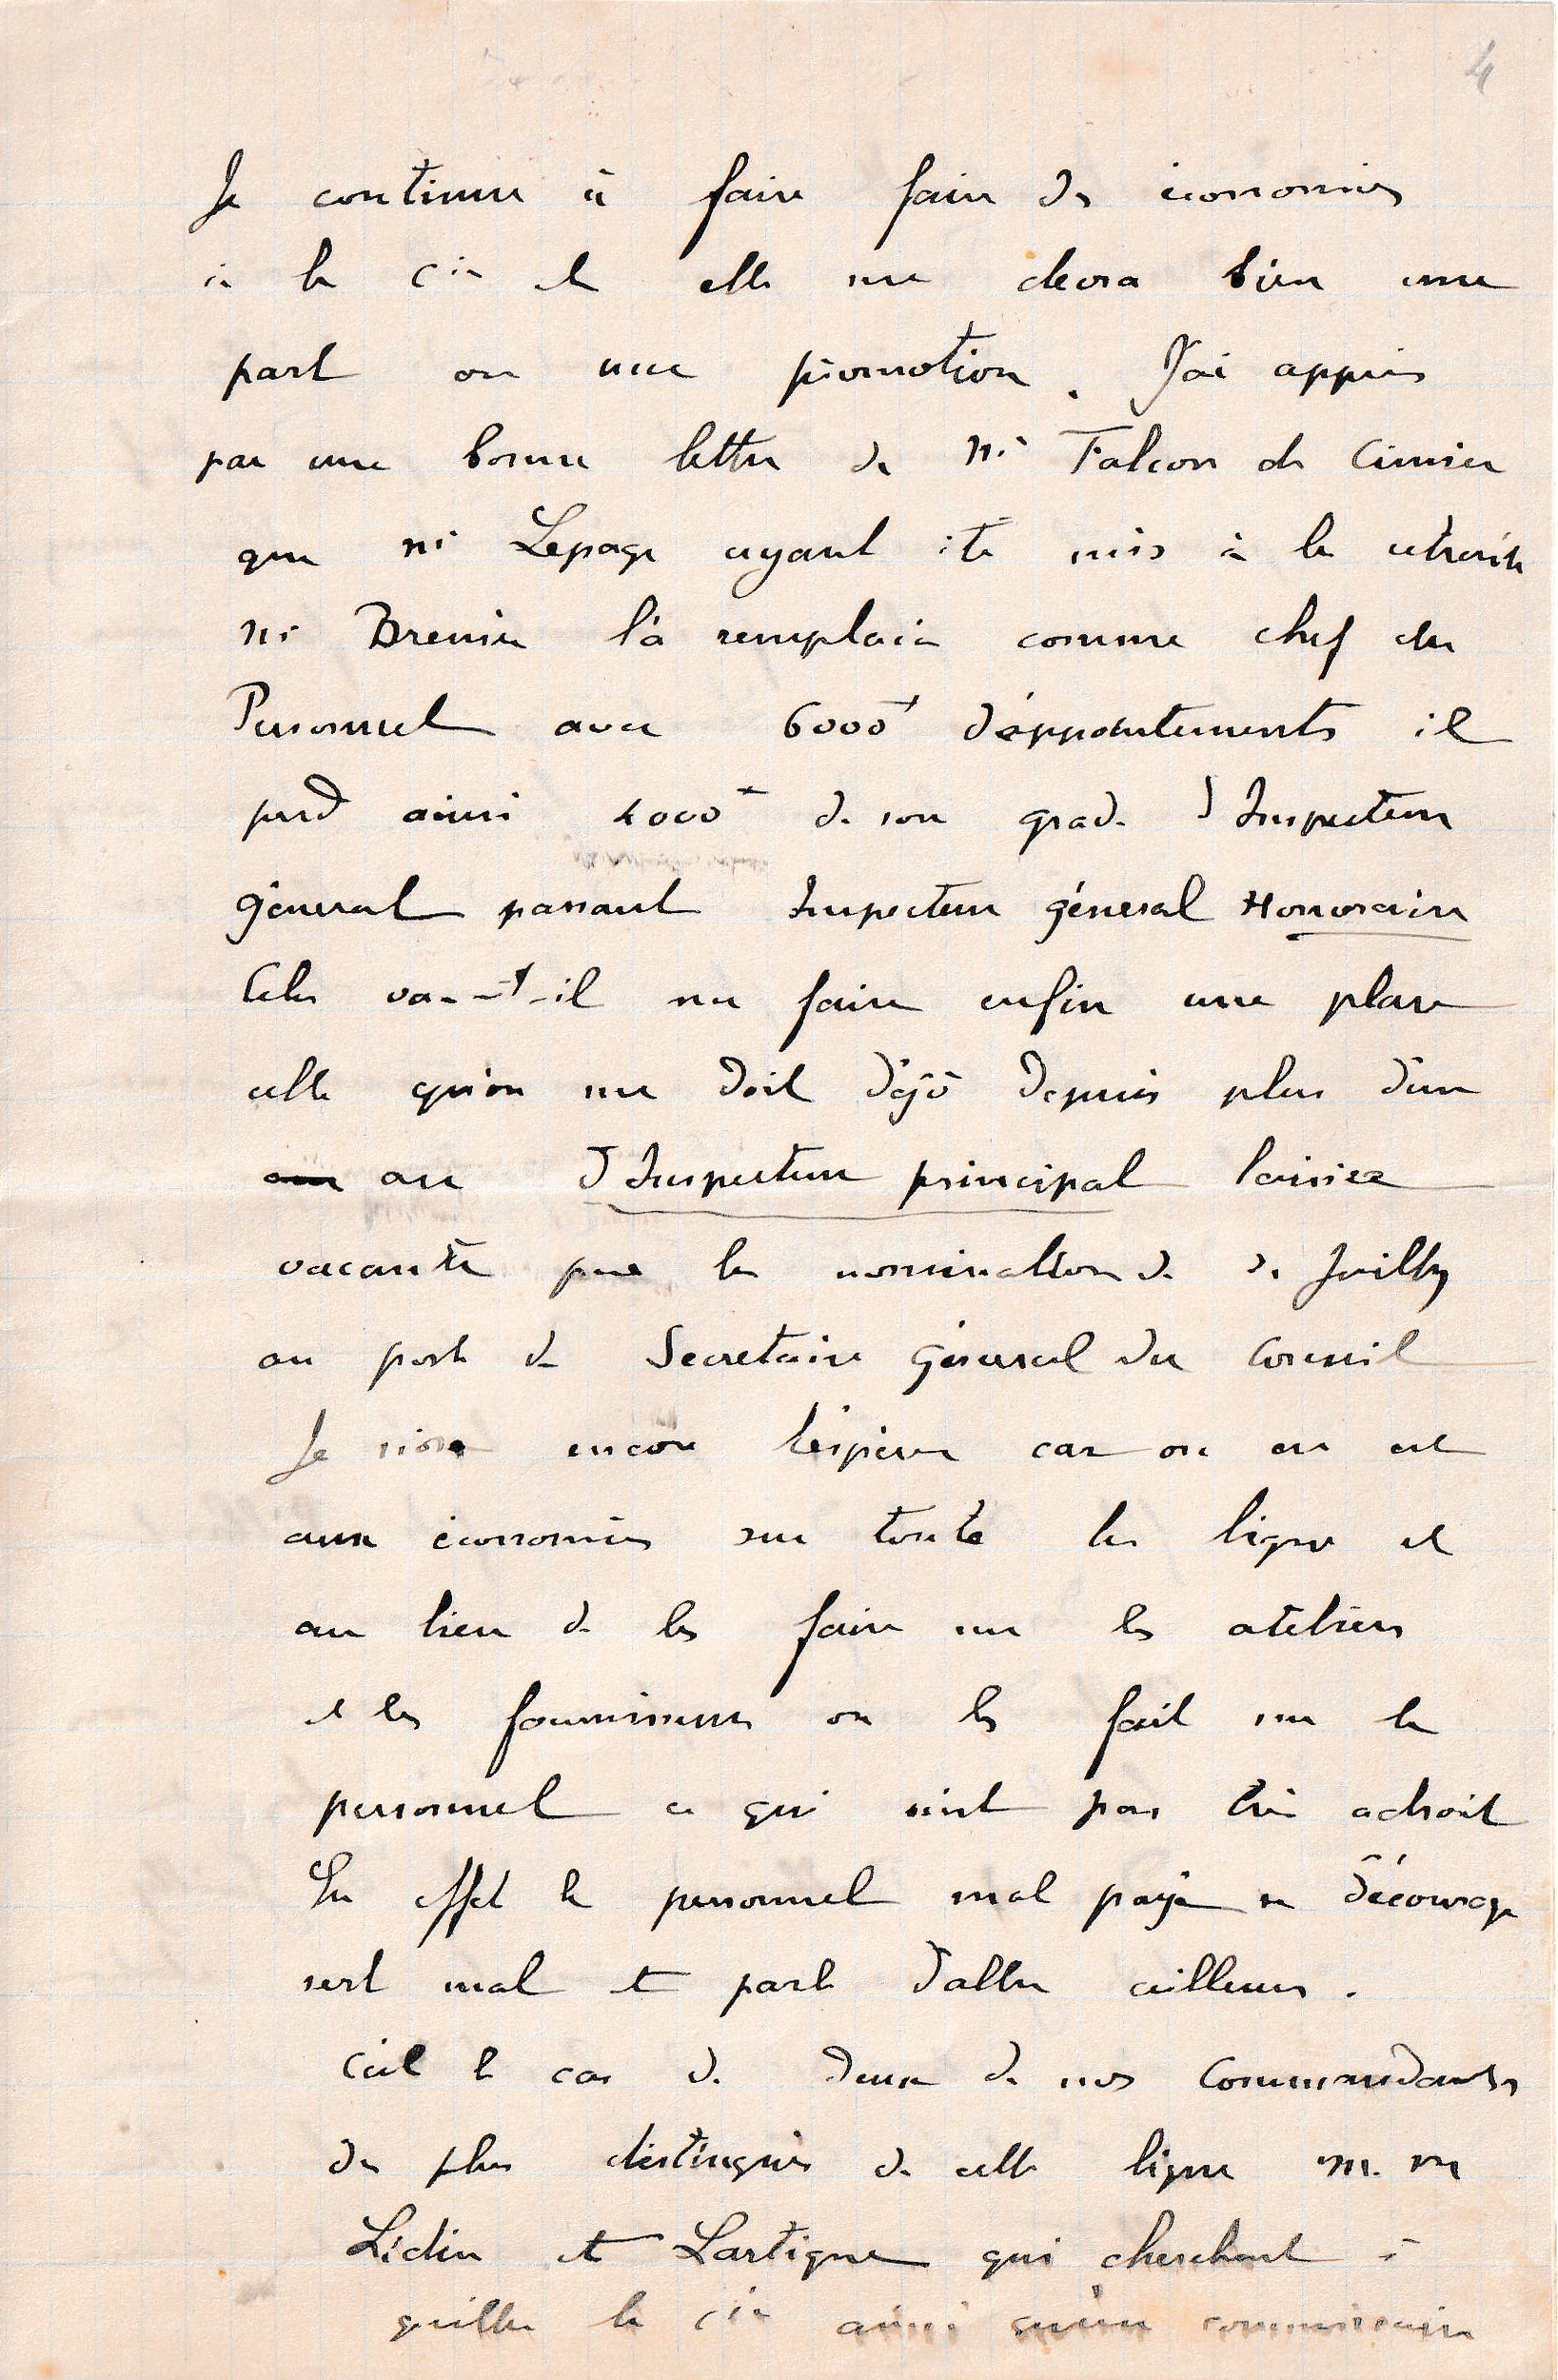 4
Je continue à faire faire des économies
à la Cie et elle me devra bien une
part ou une promotion. J'ai appris
par une bonne lettre de Mr Falcon de Cimier
que Mr Lepage ayant été mis à la retraite
Mr Brenier l'a remplacé comme chef du
Personnel avec 6000f d'appointements il
perd ainsi 4000f de son grade d'Inspecteur
général passant Inspecteur général Honoraire
Cela va-t-il me faire enfin une place
celle qu'on me doit déjà depuis plus d'un
an d'Inspecteur principal laissée
vacante par la nomination de de Juilly
au poste de Secrétaire général du Conseil
Je n'ose encore l'espérer car on en est
aux économies sur toute la ligne et
au lieu de les faire sur les ateliers
et les fournisseurs on les fait sur le
personnel ce qui n'est pas très adroit
En effet le personnel mal payé se décourage
sert mal et parle d'aller ailleurs.
C'est le cas de deux de nos Commandants
des plus distingués de cette ligne M.M
Lidin et Lartigue qui cherchent à
quitter la Cie ainsi qu'un commissaire